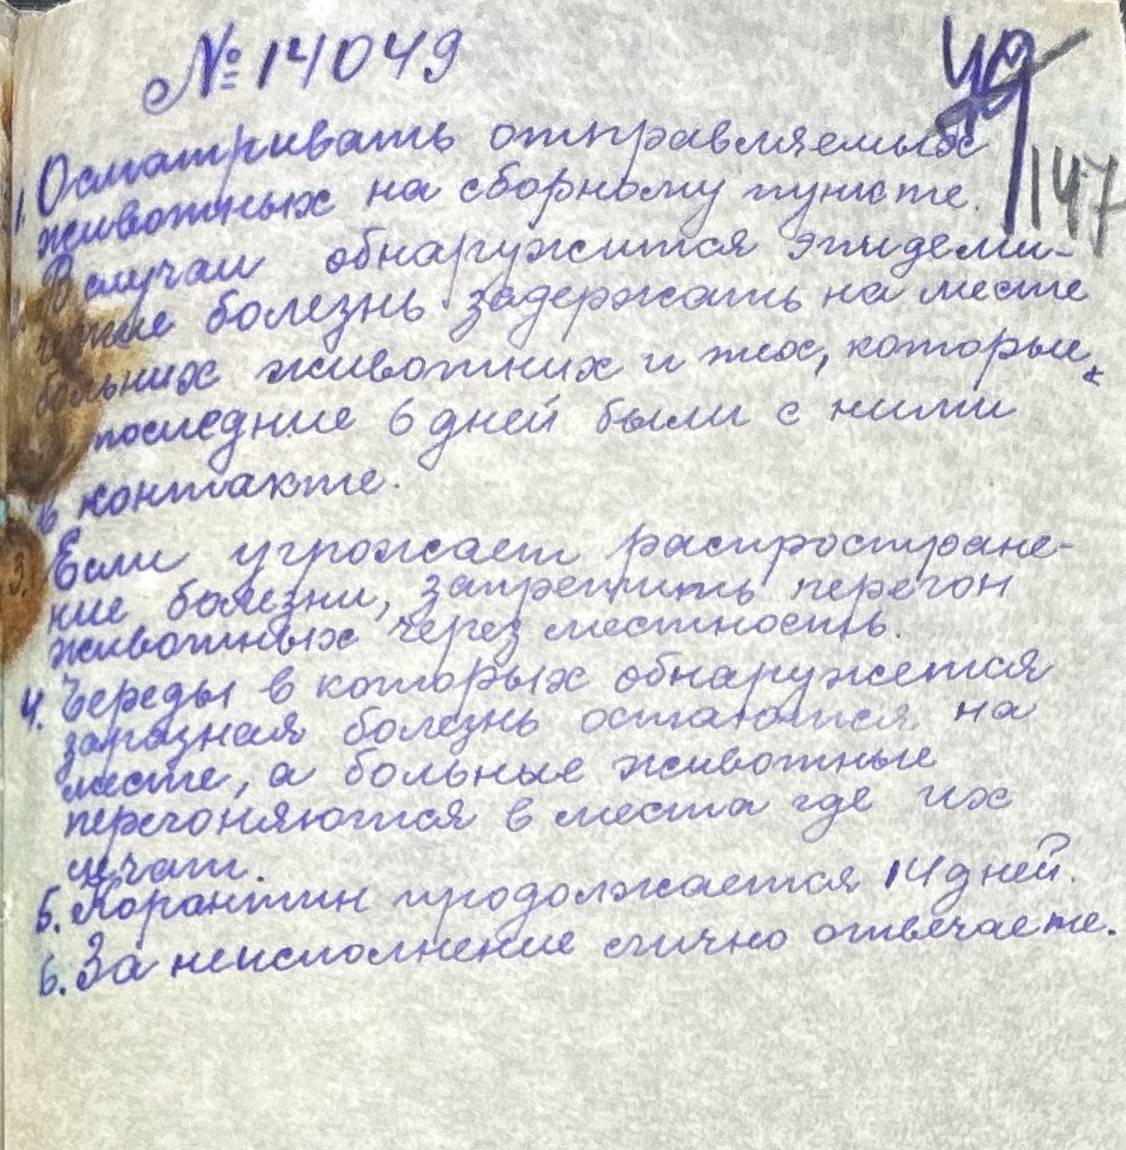 № 14049
49
147
1. Осматривать отправляемых
животных на сборному пункте.
В случаи обнаружится эпидеми-
ческие болезнь задержать на месте
больних животних и тех, которые
последние 6 дней были с ними
в контакте.
3. Если угрожает распростране-
ние болезни, запретить перегон
животных через местность.
4. Череды в которых обнаружется
заразная болезнь остаются на
месте, а больные животные
перегоняются в места где их
лечат.
5. Корантин продолжается 14 дней.
6. За неисполнение лично отвечаете.